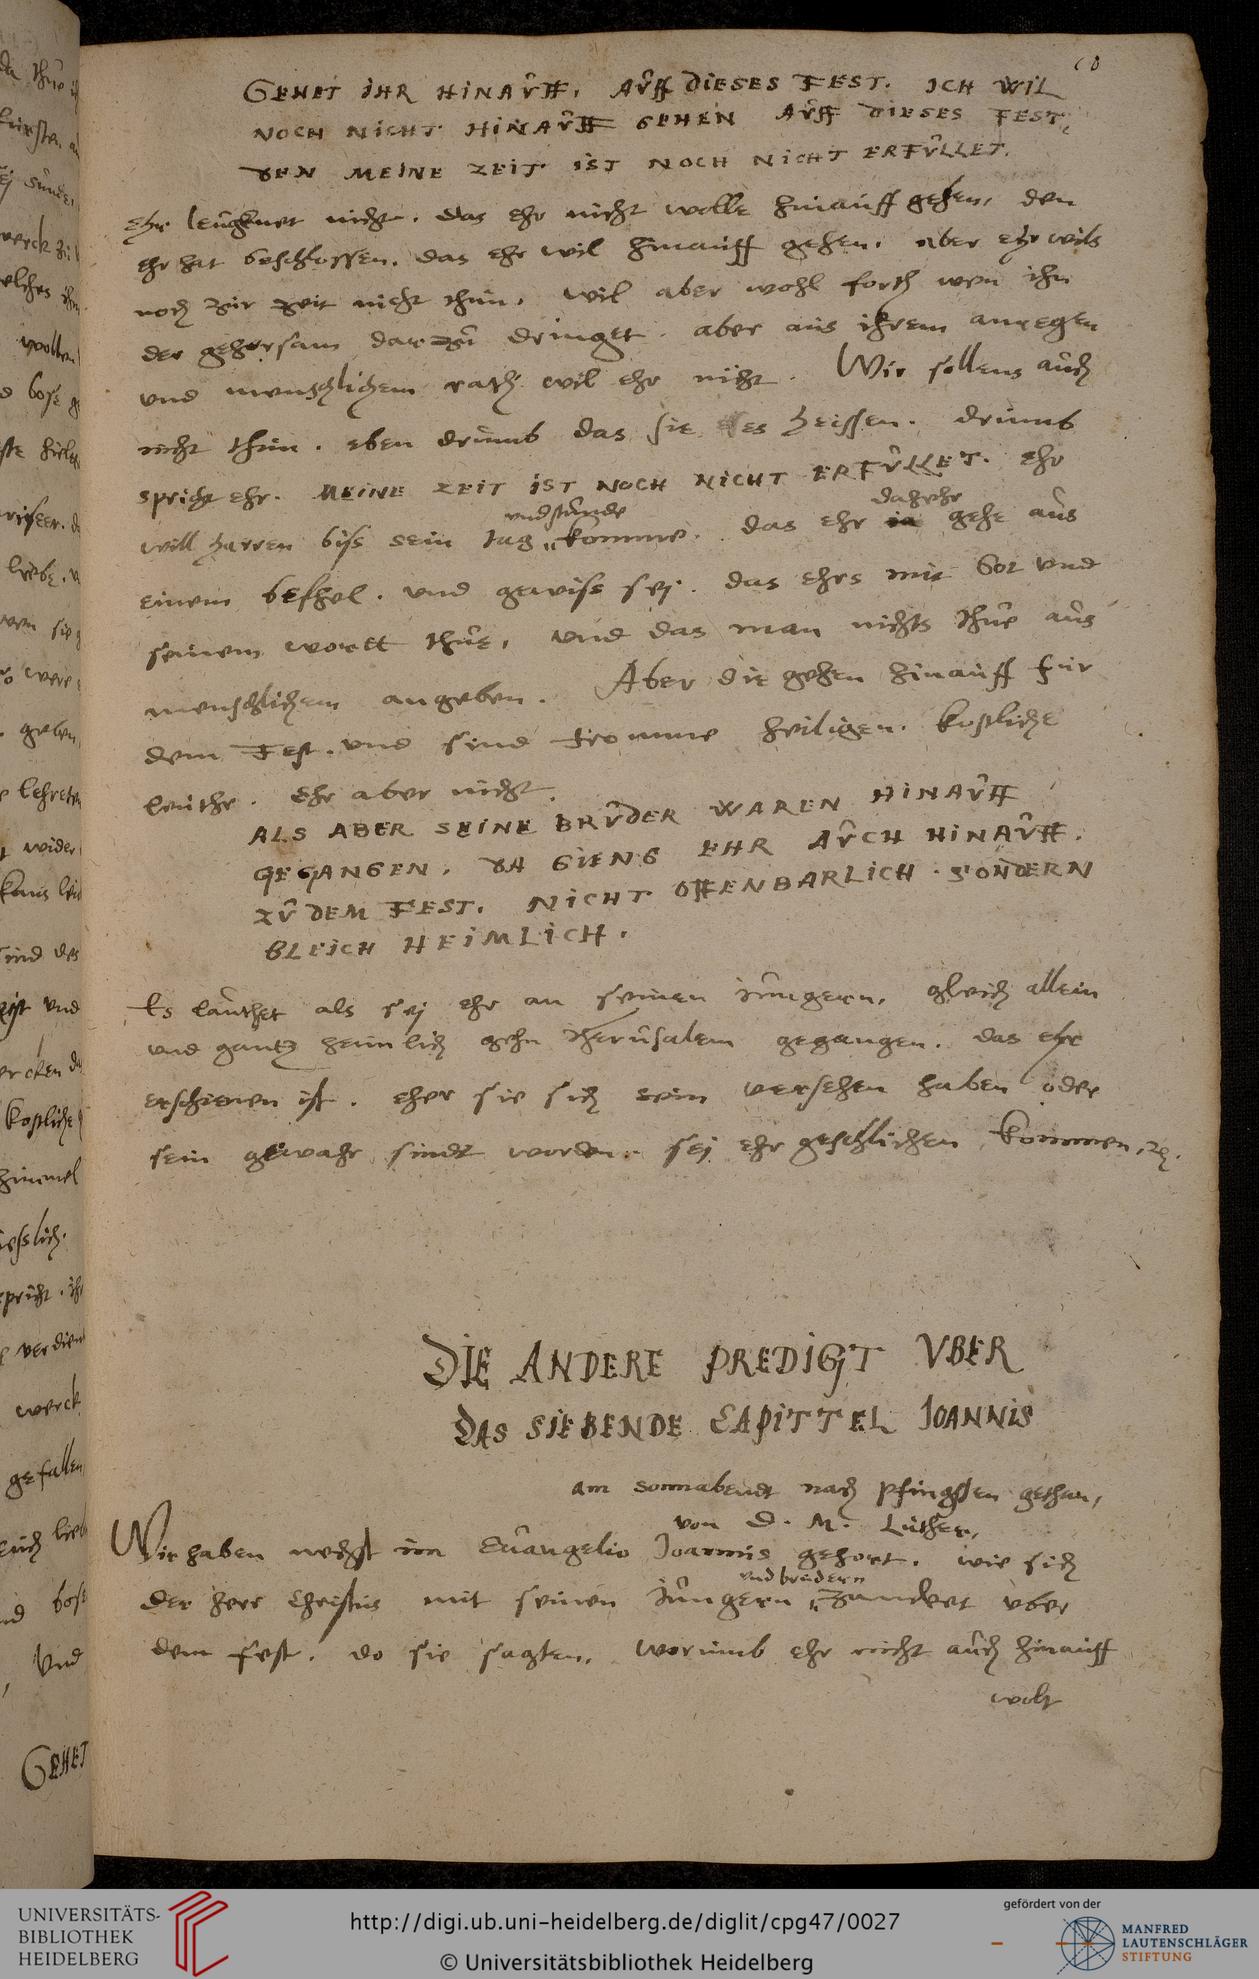 10
GEHET IHR HINAUFF, AUFF DIESES FEST. ICH WIL
NOCH NICHT HINAUFF GEHEN AUFF DIESES FEST,
DEN MEINE ZEIT IST NOCH NICHT ERFULLET.
Ehr leugknet nicht. das ehr nicht wolle hinauff gehen, den
ehr hat beschlossen. das ehr wil hinauff gehen. aber ehr wils
noch zur zeit nicht thun. wil aber wohl forth wen ihn
der gehorsam darzu dringet. aber aus ihrem anregen
und menschlichem rath wil ehr nicht. Wir sollens auch
nicht thun. eben drumb das sie es heissen. drumb
spricht ehr. MEINE ZEIT IST NOCH NICHT ERFULLET. ehr
will harren biss sein tag und stunde komme. das ehr daher gehe aus
einem befhel. und gewiss sej. das ehrs mit Got und
seinem wortt thue, und das man nichts thue aus
menschlichem angeben. Aber die gehen hinauff fur
dem Fest. und sind fromme heiligen. kostliche
leuthe. Ehr aber nicht.
ALS ABER SEINE BRUDER WAREN HINAUFF
GEGANGEN, DA GIENG EHR AUCH HINAUFF.
ZU DEM FEST. NICHT OFFENBARLICH. SONDERN
GLEICH HEIMLICH.
Es lauthet als sej ehr an seinen iungern, gleich allein
und gantz heimlich gehn Jherusalem gegangen. das ehr
erschienen ist. eher sie sich sein versehen haben oder
sein gewahr sindt worden. sej ehr geschlichen kommen, etc.
DIE ANDERE PREDIGT VBER
DAS SIEBENDE CAPITTEL IOANNIS
am sonnabendt nach Pfingsten gethan,
von D. M. Luther,
Wir haben nechst im Euangelio Joannis gehort. wie sich
der herr Christus mit seinen iungern und brudern handert uber
dem fest. do sie sagten, worumb ehr nicht auch hinauff
wolt
GEHET
UNIVERSITÄTS-
BIBLIOTHEK
HEIDELBERG
http://digi.ub.uni-heidelberg.de/diglit/cpg47/0027
© Universitätsbibliothek Heidelberg
gefördert von der
MANFRED
LAUTENSCHLÄGER
STIFTUNG